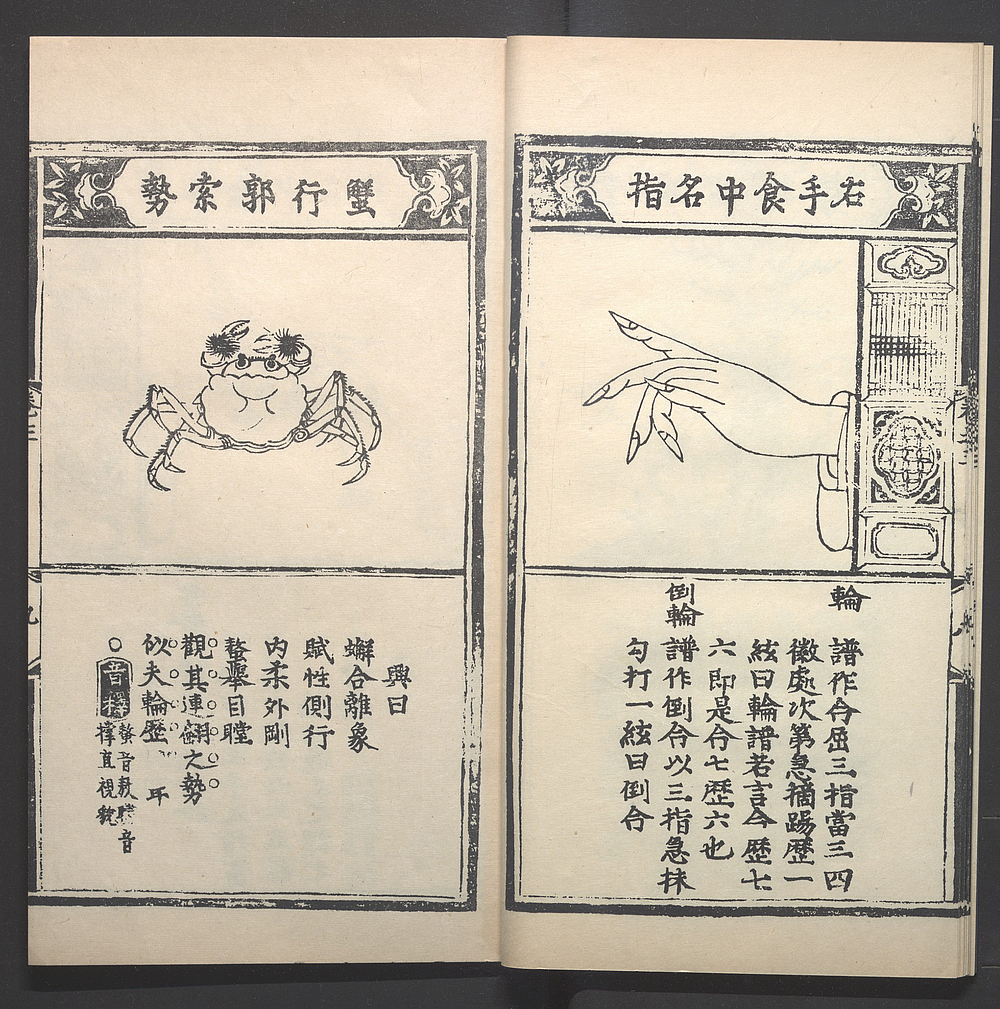 右手食中名指
輪
譜作仑屈三指當三四
徽處次第急摘踢歷一
絃曰輪譜若言仑歷七
六即是仑七歷六也
倒輪
譜作倒仑以三指急抹
勾打一絃曰倒仑
蟹行郭索勢
興曰
蠏合離象
賦性側行
内柔外剛
螯舉目瞠
觀其連翩之勢
似夫輪歷 耳
音釋
螯音敖瞠音
撑直視貌
卷三
九